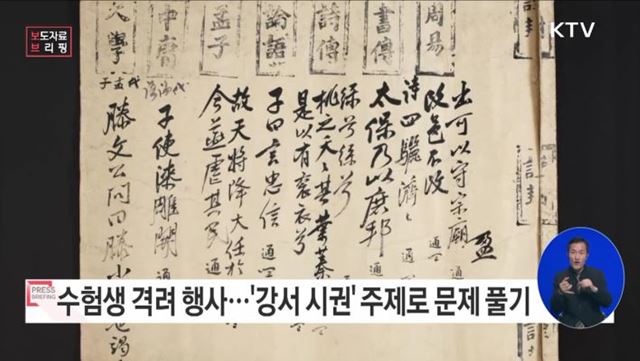 보도자료
브리핑
KTV
周易
書傳
詩傳
論語
孟子
中庸
大學
出可以守宗廟
改邑不改
詩四驪濟々 通
太保乃以庶邦 通
綠兮綠兮
桃之夭々其葉蓁
是以有袞衣兮 通
子曰言忠信 通
故天將降大任於
今燕虐其民 通
子使漆雕開 通
滕文公問曰滕小
PRESS BRIEFING
수험생 격려 행사…'강서 시권' 주제로 문제 풀기